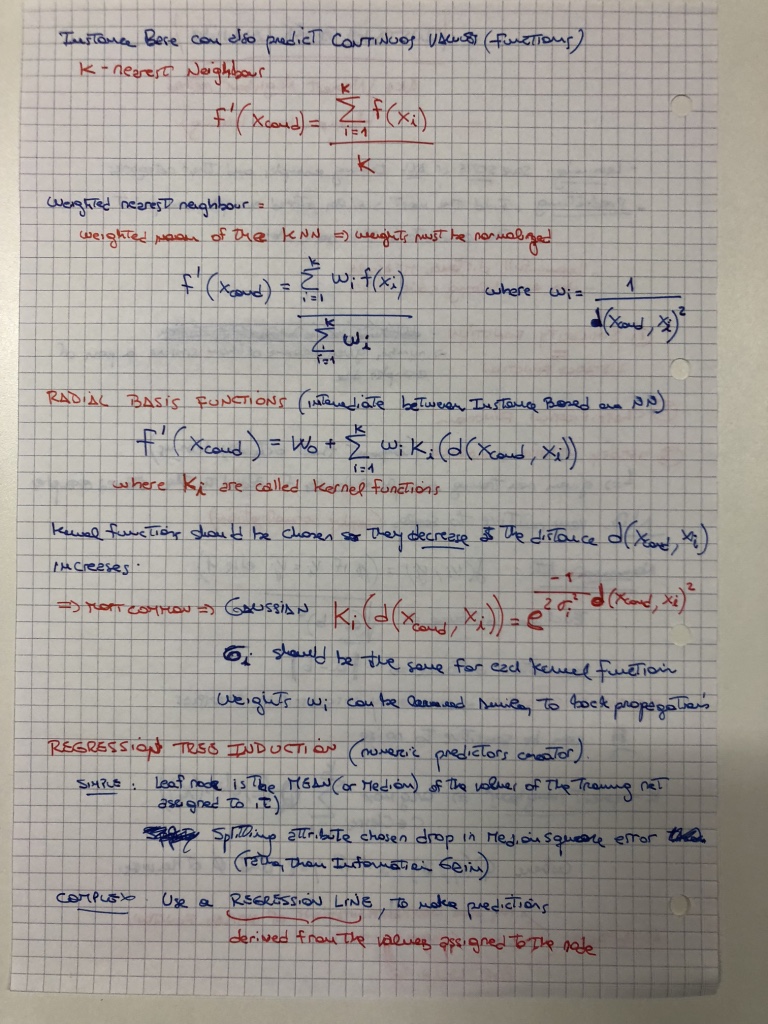 Instance Base can also predict CONTINUOS VALUES (functions)
K-nearest Neighbour
f'(xcand) = Σ_{i=1}^{K} f(xi) / K
Weighted nearest neighbour =
weighted mean of the KNN => weights must be normalized
f'(xcand) = Σ_{i=1}^{K} wi f(xi) / Σ_{i=1}^{K} wi where wi = 1 / d(xcand, xi)²
RADIAL BASIS FUNCTIONS (intermediate between Instance Based and NN)
f'(xcand) = w0 + Σ_{i=1}^{K} wi Ki(d(xcand, xi))
where Ki are called Kernel functions
Kernel functions should be chosen so they decrease as the distance d(xcand, xi)
increases.
=> most common => GAUSSIAN Ki(d(xcand, xi)) = e^{-1/(2σi²) d(xcand, xi)²}
σi should be the same for each kernel function
Weights wi can be learned similarly to back propagation
REGRESSION TREE INDUCTION (numeric predictors creator).
SIMPLE: Leaf node is the MEAN (or Median) of the values of the Training set
assigned to it)
Splitting attribute chosen drop in Median square error
(rather than Information Gain)
COMPLEX: Use a REGRESSION LINE, to make predictions
derived from the values assigned to the node